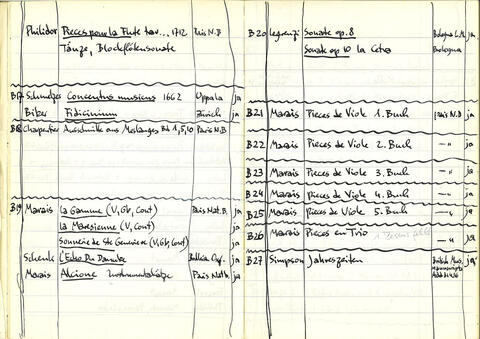 Philidor Pieces pour la Flute trav... 1712 Paris N.B
Tänze, Blockflötensonate
B17 Schmelzer Concentus musicus 1662 Uppsala ja
Biber Fidicinium Zürich ja
B18 Charpentier Ausschnitte aus Melanges Bd 1,5,10 Paris N.B
B19 Marais La Gamme (V, Gb, Cont) Paris Nat.B. ja
La Maresienne (V, Gb, Cont) ja
Sonnerie de Ste Genevieve (V, Gb, Cont) ja
Schenk L'Echo Du Danube ja
Marais Alcione Instrumentalsätze Paris Nat.b. ja
B20 Legrenzi Sonate op. 8 Bologna L.M. ja
Sonate op 10 la Cetra Bologna
B21 Marais Pieces de Viole 1. Buch Paris N.B ja
B22 Marais Pieces de Viole 2. Buch –"– ja
B23 Marais Pieces de Viole 3. Buch –"– ja
B24 Marais Pieces de Viole 4. Buch –"– ja
B25 Marais Pieces de Viole 5. Buch –"– ja
B26 Marais Pieces en Trio –"– ja
B27 Simpson Jahreszeiten British Mus. ja
manuscripts